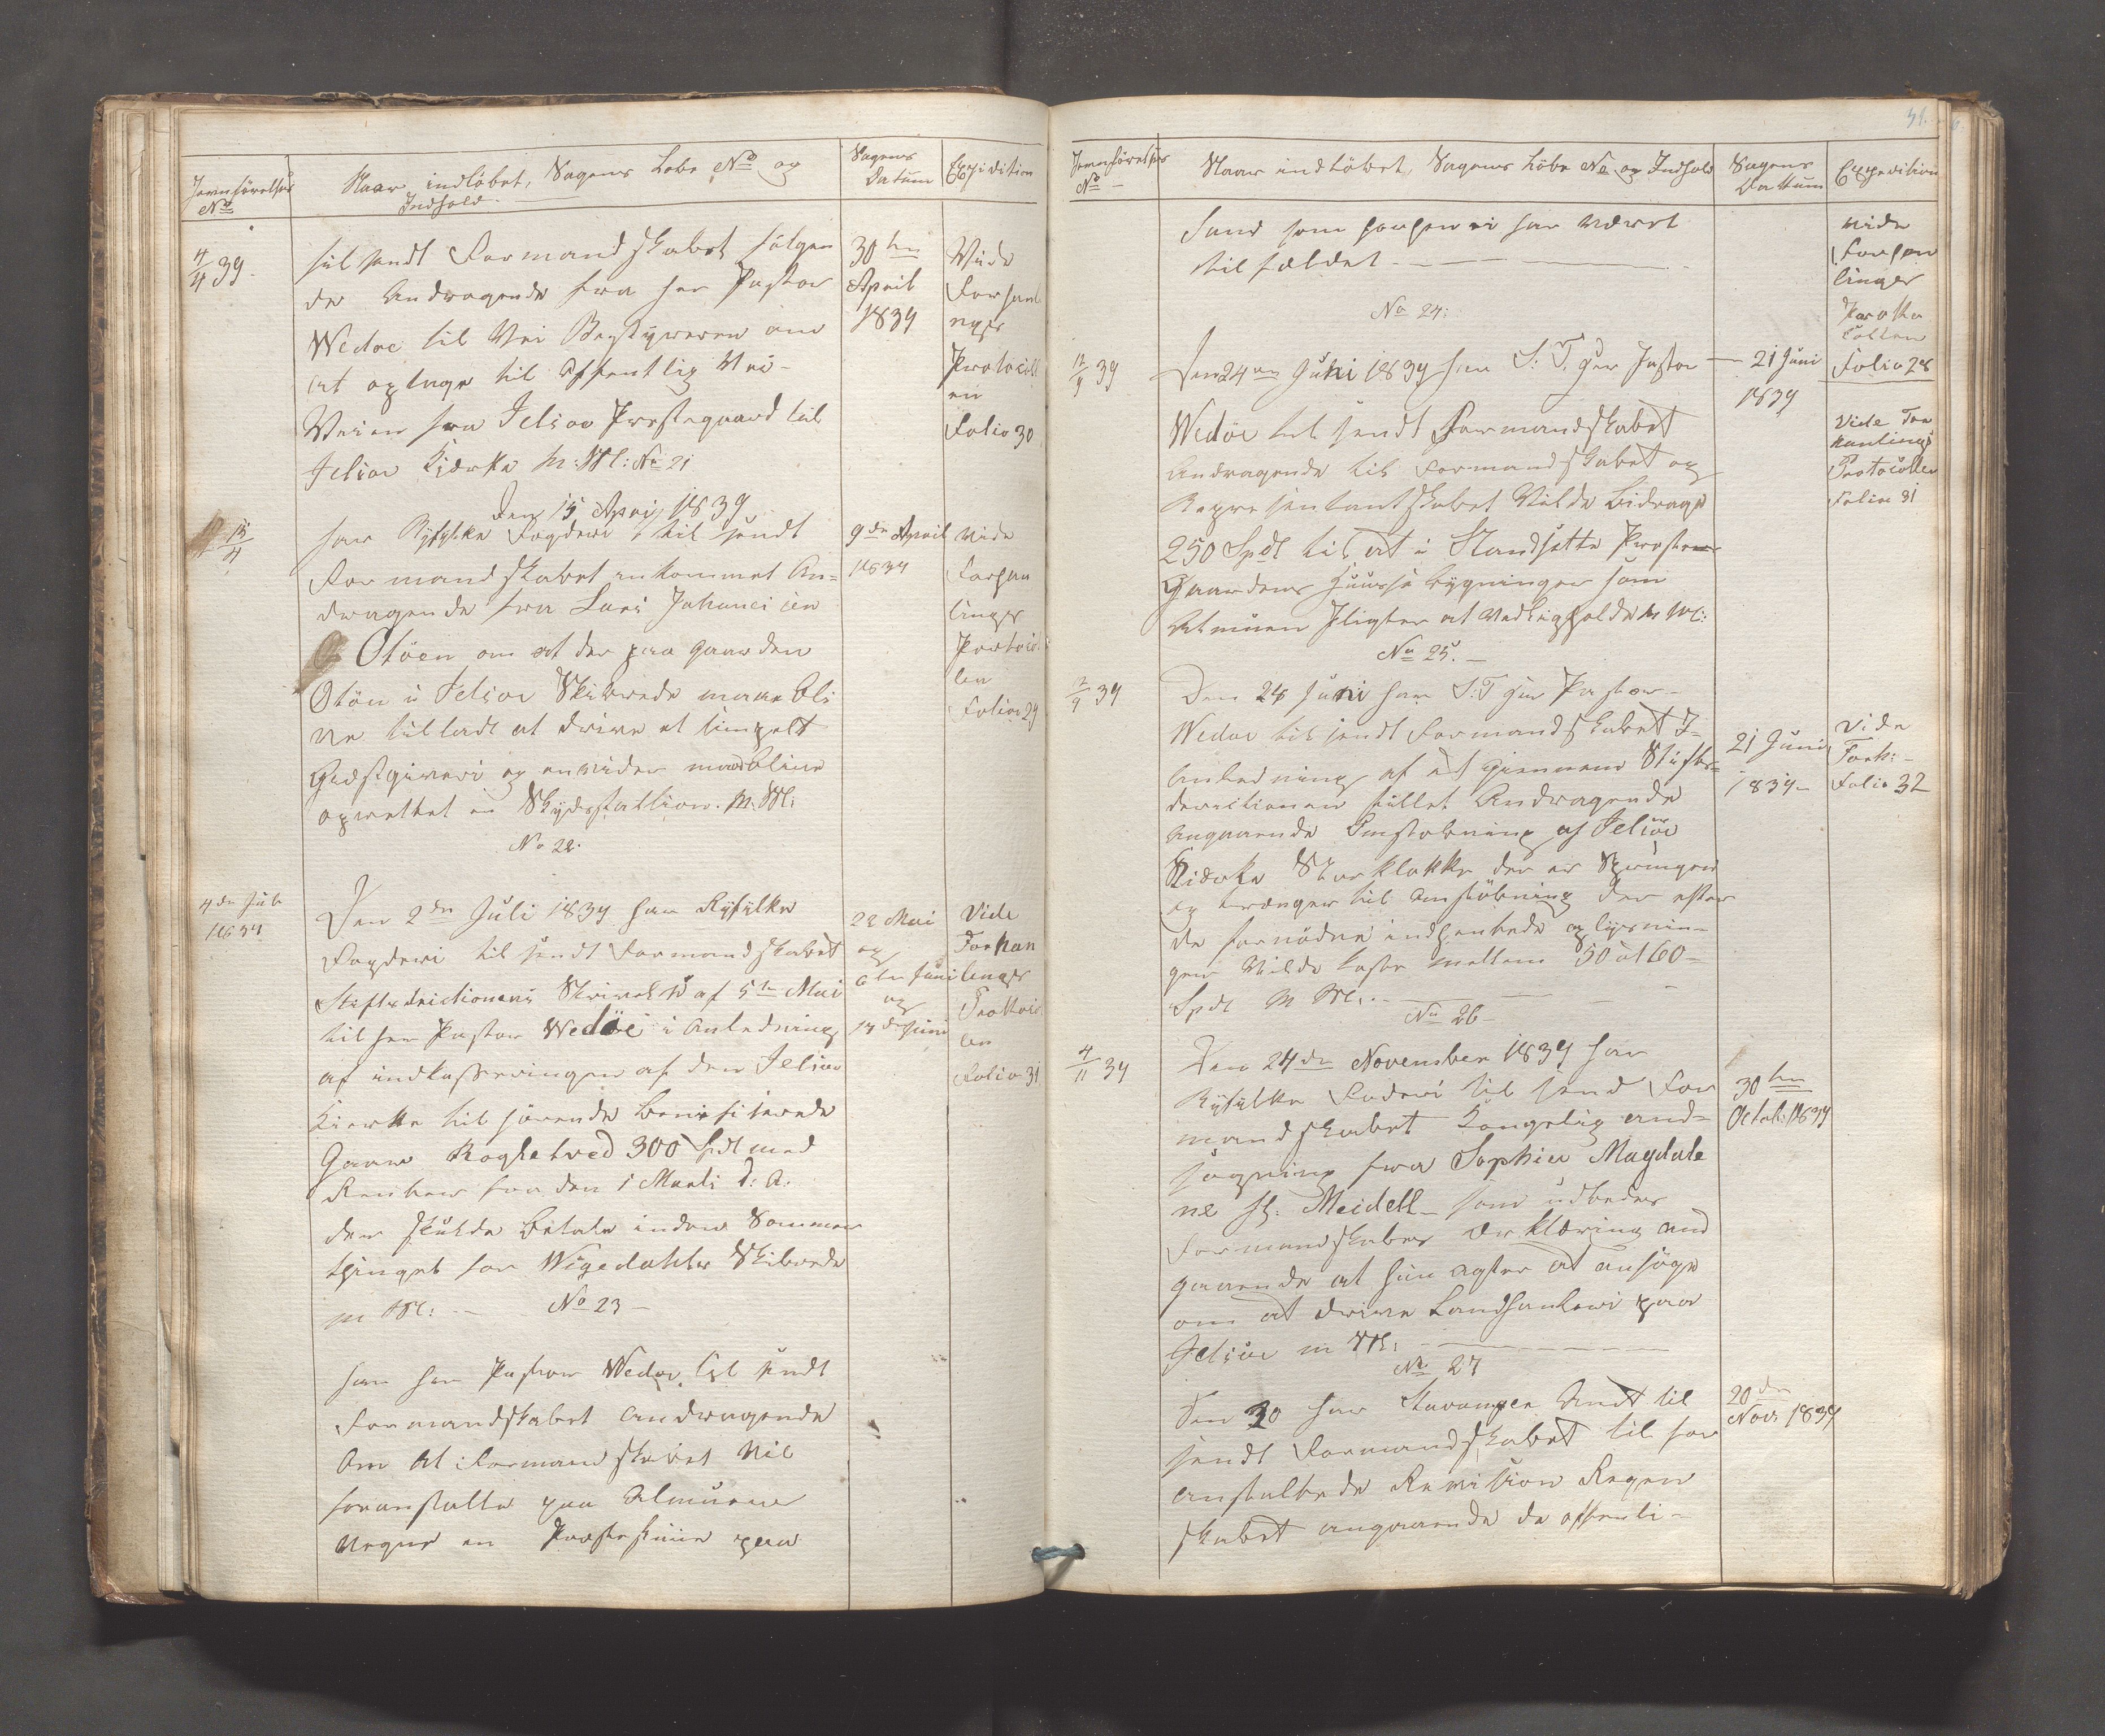 Jevnförelses
No
Naar indlöbet, Sagens Lobe No og
Indhold
Sagens
Datum
Expidition
4/4 39.
tilsendt Formandskabet følgen
de Andragende fra Her Pastor
Wedøe til Vei Bestyreren om
at optage til offentlig Vei-
Veien fra Jelsøe Prestegaard til
Jelsøe Kierke m: M: No 21
30te
April
1839
Vide
Forhand
nges
Protocoll
en
Folio 30
Den 15 April 1839
15/4
har Ryfylke Fogderi tilsendt
Formandskabet inkommet An-
dragende fra Lars Johannesen
Otøen om at der paa Gaarden
Otøn i Jelsøe Skibrede maae bli
ve tilladt at drive et simpelt
Giestgiveri og envider maa blive
oprettet en Skydsstattion. m. M:
9de April
1839
vide
Forhan
linges
Protocol
len
Folio 29
No 22.
4de Juli
1839
Den 2den Juli 1839 har Ryfylke
Fogderi tilsendt Formandskabet
Stiftsdirictionens Skrivelse af 5te Mai
til Her Pastor Wedøe i Anledning
af indkasseringen af den Jelsøe
Kierke tilhörende Benefiserede
Gaard Roghetved 300 Spdl med
Renter fra den 1 Marti d: A:
der skulde Betale inden Sommer
thinget for Wigedahls Skibrede
m M: — No 23 —
22 Mai
og
6te Juni
og
14de Juni
Vide
Forhan
linges
Prottocol
len
Folio 31
har Her Pastor Wedøe tilsendt
Formandskabet Andragende
Om At Formandskabet vil
foranstalte paa Almuens
Vegne en Prestestue paa
31.
Jevnförelses
No —
Naar indlöbet, Sagens Löbe No og Indhold
Sagens
Dattum
Expedition
Sund som forhen ei har været
tilfældet —
vide
Forhan
linges
Protto
collen
Folio 28
No 24:
12/9 39
Den 24de Juni 1839 har S: T. Her Pastor
Wedöe tilsendt Formandskabet
Andragende til Formandskabet og
Representantskabet Vilde Bidrage
250 Spdl til at i Standsette Preste
Gaardens Huuse bygninger som
Almuen Pligter at vedligholde m M:
21 Juni
1839
Vide For
hanlings
Protocollen
Folio 31
No 25. —
12/9 39
Den 24 Juni har S: T Her Pastor —
Wedøe tilsendt Formandskabet I
Anledning af et giennem Stifts-
direktionen stillet Andragende
Angaaende Omstøbning af Jelsøe
Kierke Storklokke der er Sprungen
og trænger til omstöbning der efter
de fornödne indhentede oplysnin-
ger Vilde koste mellem 50 a 60 —
Spdl M M: —
21 Juni
1839 —
Vide
Forh: —
Folio 32
No 26 —
4/11 39
Den 24de November 1839 har
Ryfylke Foderi tilsend For
mandskabet Kongelig and-
søgning fra Sophie Magdale
ne H: Meidell — som udbeder
Formandskabes Erklæring and
gaaende at hun agter at ansöge
om at drive Landhanleri paa
Jelsöe m M: —
30te
Octob: 1839
No 27
Den 30 har Stavanger Amt til
sendt Formandskabet til for
anstaltede Revission Regen
skabet angaaende de offenli-
20de
Nov: 1839